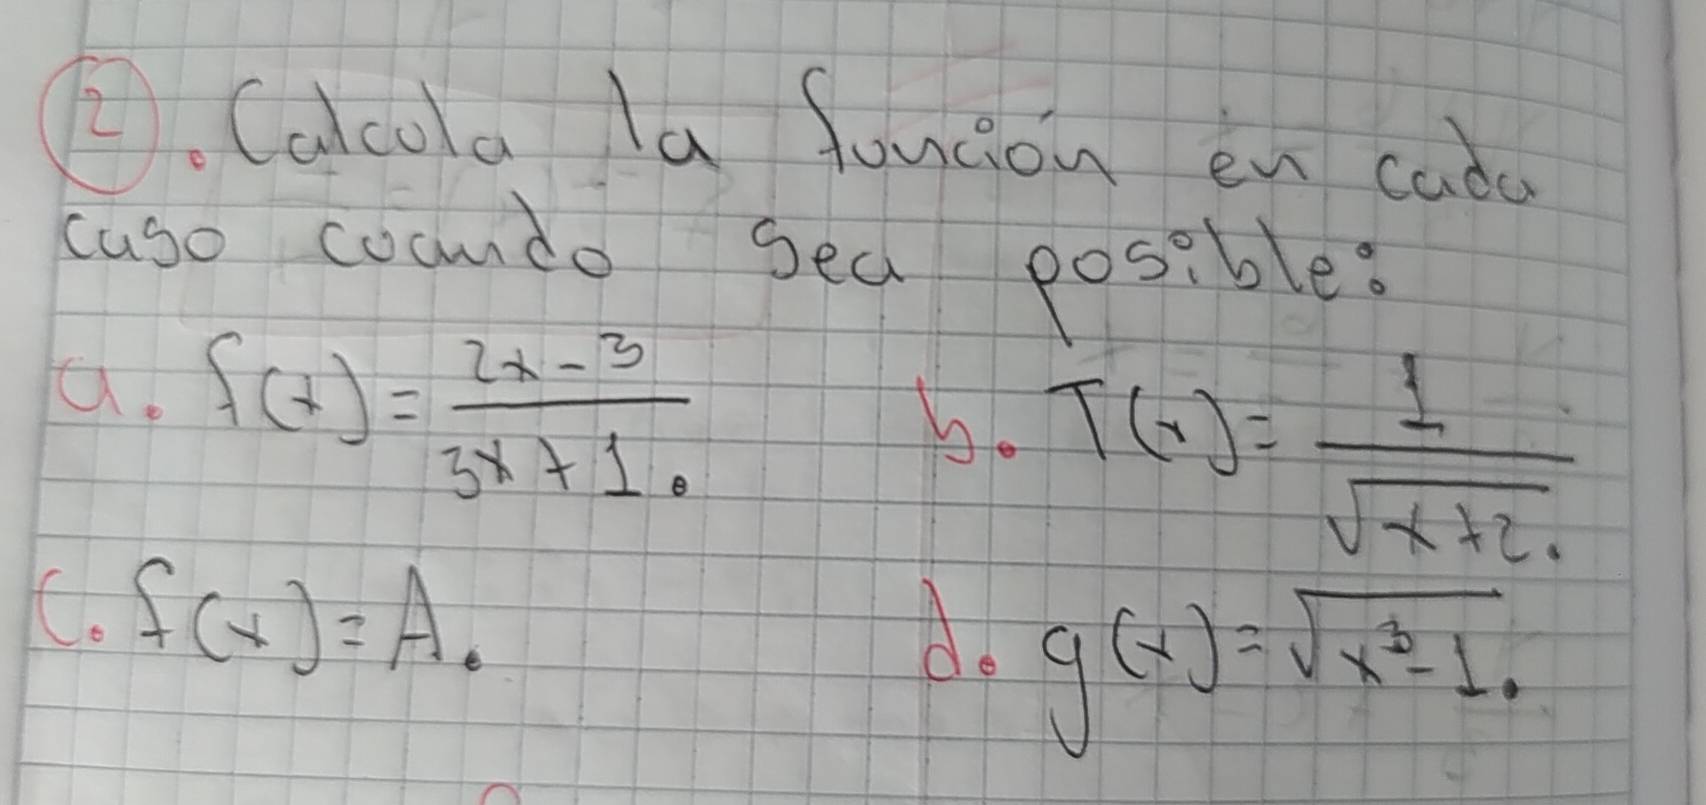 2. Calcula la función en cada
caso cuando sea posible:
a. f(x) = 2x - 3 / 3x + 1. b. T(x) = 1 / √x + 2.
c. f(x) = A. d. g(x) = √x³ - 1.